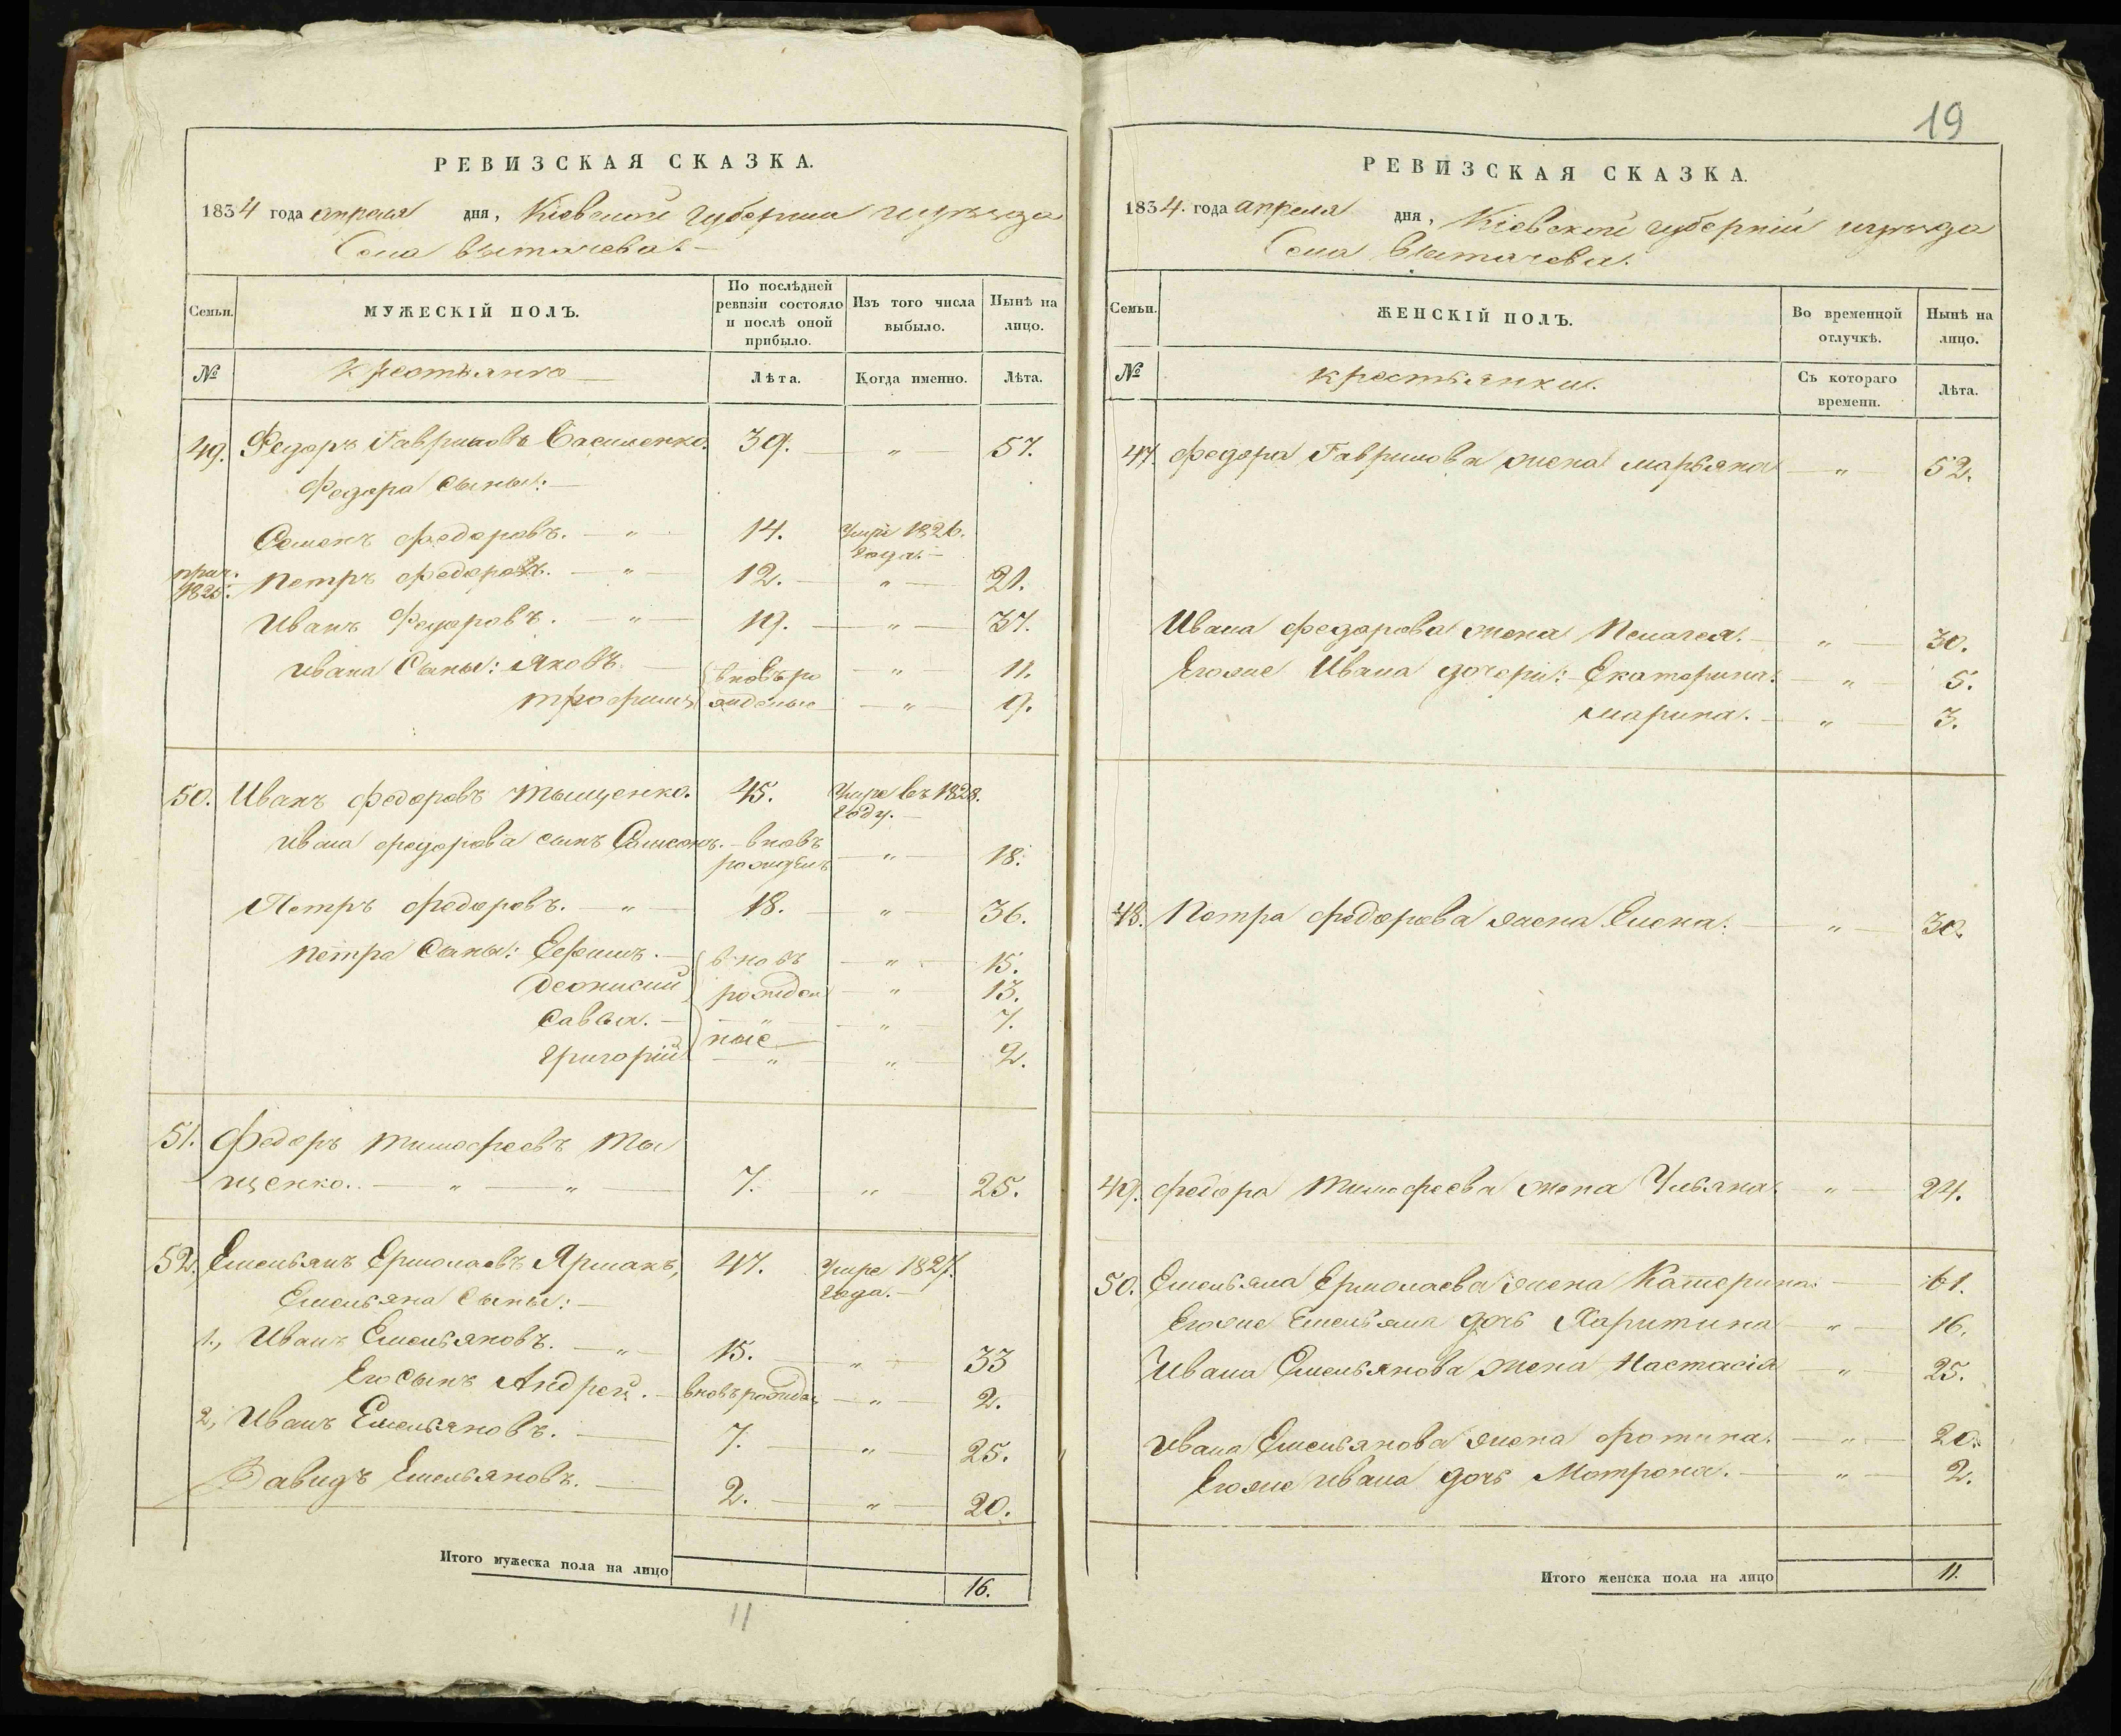 РЕВИЗСКАЯ СКАЗКА.
1834 года апреля дня, Кіевской губерніи и уезда
Села Вытачева.
Семьи.
МУЖЕСКІЙ ПОЛЪ.
По послѣдней ревизіи состояло и послѣ оной прибыло.
Изъ того числа выбыло.
Нынѣ на лицо.
№
Лѣта.
Когда именно.
Лѣта.
49. Федоръ Гавриловъ Василенко. 39. — " — 57.
Федора сыны: —
Семенъ Федоровъ. — " 14. Умре 1826. года. —
1825. Петръ Федоровъ. — " — 12. — " — 21.
Иванъ Федоровъ. — " — 19. — " — 37.
Ивана сыны: Яковъ. — вновь ро — " — 11.
Трофимъ жденые — " — 9.
50. Иванъ Федоровъ Тыщенко. 45. Умре въ 1828. году. —
Ивана Федорова сынъ Самсонъ. — вновь рожденъ — " — 18.
Петръ Федоровъ. — " — 18. — " — 36.
Петра сыны: Ефимъ. — вновь — " — 15.
Деонисий рожден — " — 13.
Савва. — — " — — " — 7.
Григорій ные — " — — " — 2.
51. Федоръ Тимофеевъ Ты
щенко. — " — " — 7. — " — 25.
52. Емельянъ Ермолаевъ Ярмакъ, 47. Умре 1827. года. —
Емельяна сыны: —
1., Иванъ Емельяновъ. — " — 15. — " — 33
Его сынъ Андрей. — вновь рожден — " — 2.
2, Иванъ Емельяновъ. — 7. — " — 25.
Давидъ Емельяновъ. — 2. — " — 20.
Итого мужеска пола на лицо 16.
11
19
РЕВИЗСКАЯ СКАЗКА.
1834. года апреля дня, Кіевской губерніи и уезда
Села Вытачева.
Семьи.
ЖЕНСКІЙ ПОЛЪ.
Во временной отлучкѣ.
Нынѣ на лицо.
№
крестьянки.
Съ котораго времени.
Лѣта.
47. Федора Гаврилова жена Марьяна — " — 52.
Ивана Федорова жена Пелагея. — " — 30.
Егоже Ивана дочери: Екатерина. — " — 5.
Марина. — " — 3.
48. Петра Федорова жена Елена. — " — 30.
49. Федора Тимофеева жена Ульяна. — " — 24.
50. Емельяна Ермолаева жена Катерина. — 61.
Егоже Емельяна дочь Харитина — " — 16.
Ивана Емельянова жена Настасія — " — 25.
Ивана Емельянова жена Фотина. — " — 20.
Егоже Ивана дочь Мотрона. — " — 2.
Итого женска пола на лицо 11.